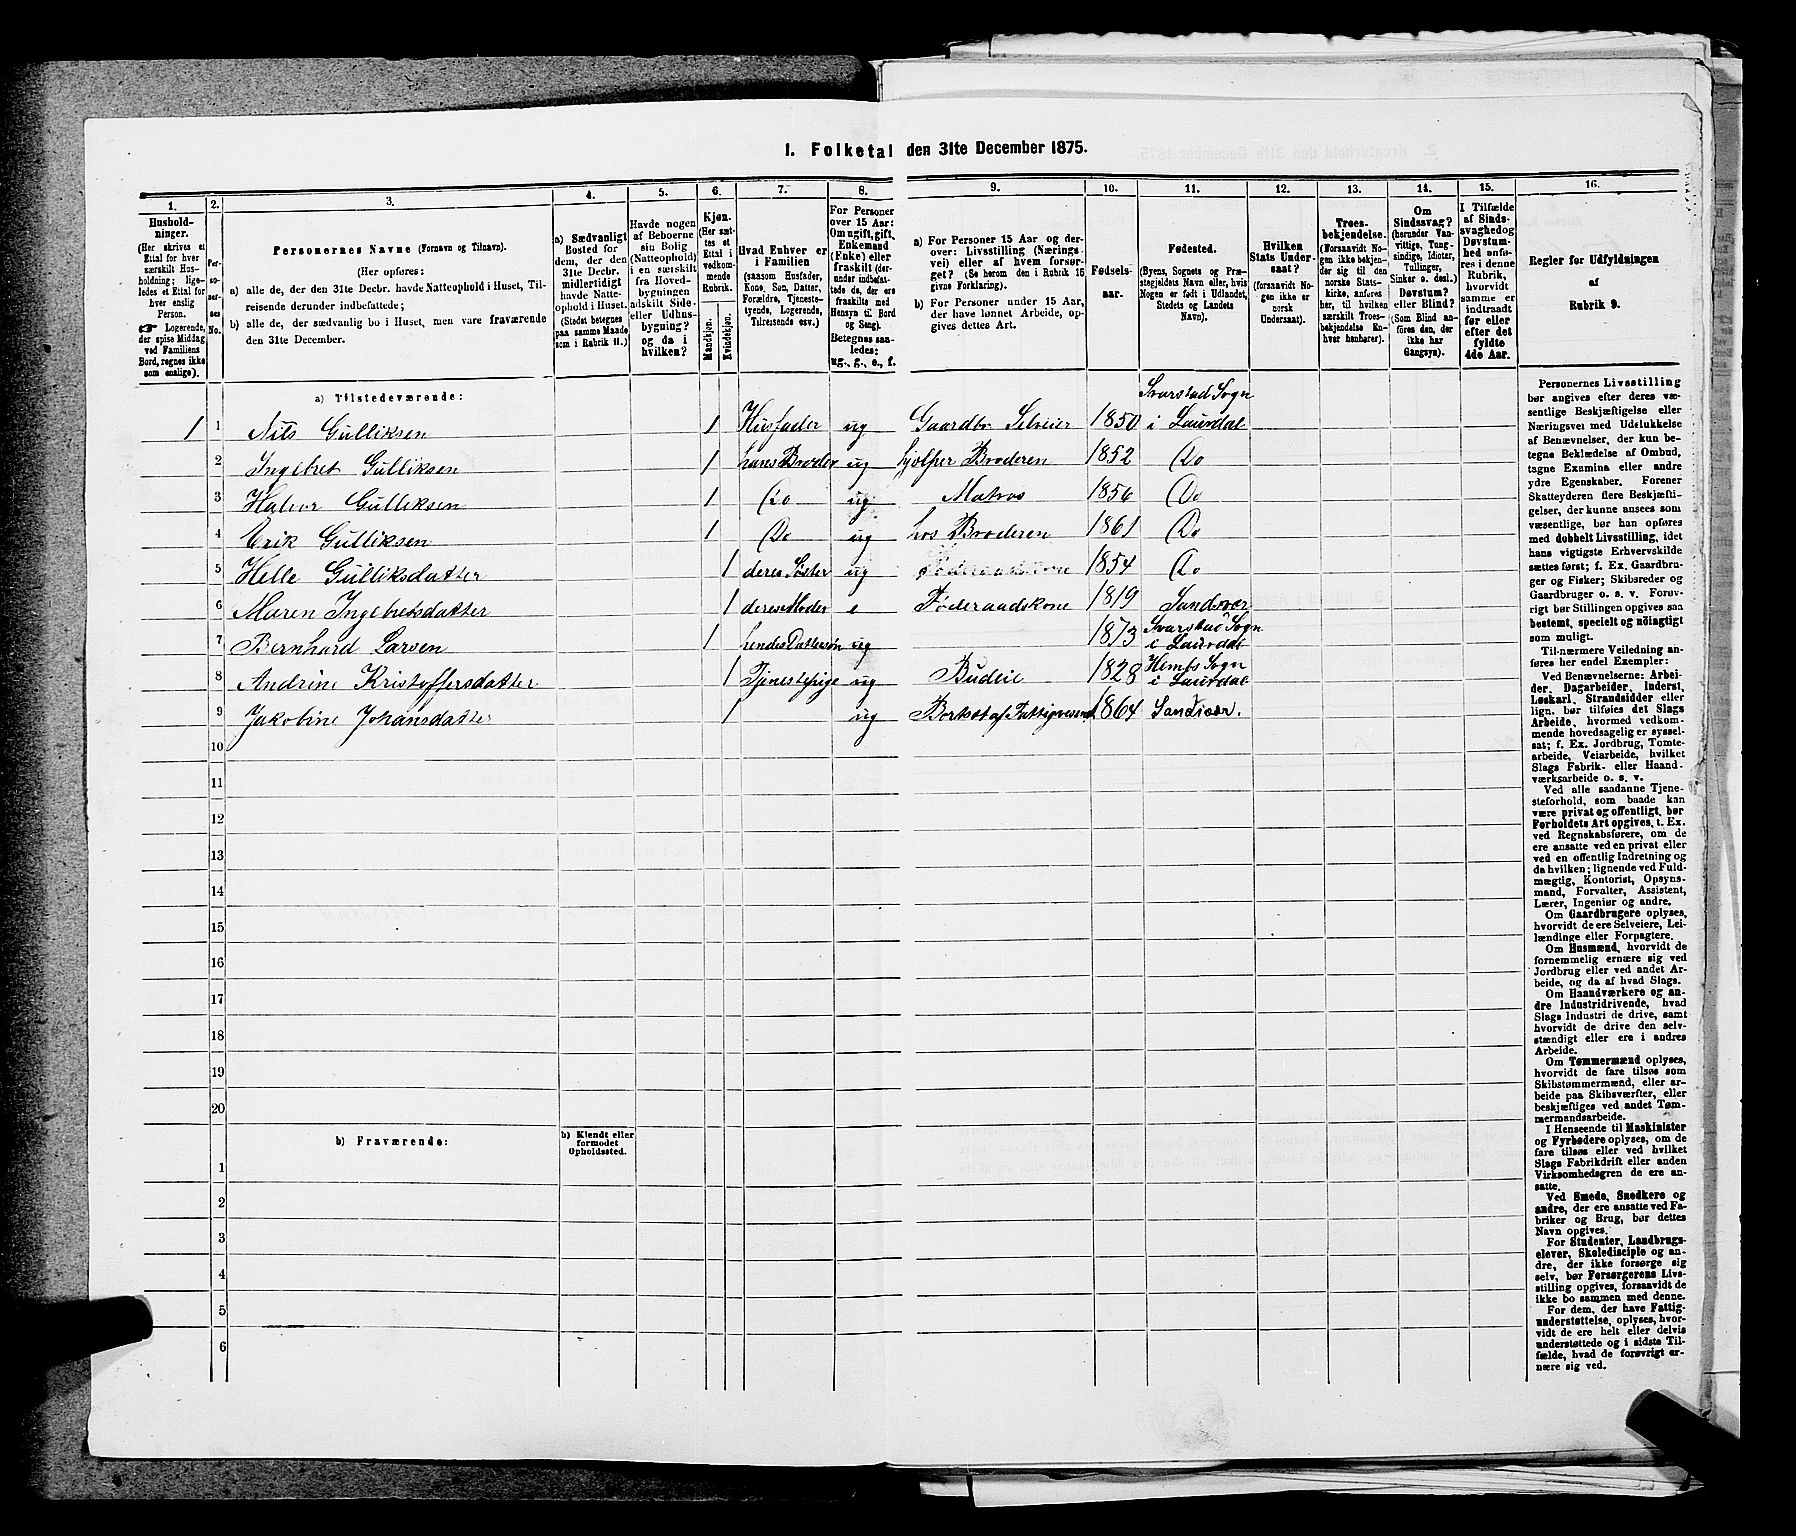 1. Folketal den 31te December 1875.
1. 2. 3. 4. 5. 6. 7. 8. 9. 10. 11. 12. 13. 14. 15. 16.
Hushold-
ninger.
(Her skrives et
Ettal for hver
særskilt Hus-
holdning; lige-
ledes et Ettal for
hver enslig
Person.
Logerende,
der spise Middag
ved Familiens
Bord, regnes ikke
som enslige).
Personernes Navne (Fornavn og Tilnavn).
(Her opføres:
a) alle de, der den 31te Decbr. havde Natteophold i Huset, Til-
reisende derunder indbefattede;
b) alle de, der sædvanlig bo i Huset, men vare fraværende
den 31te December.
a) Sædvanligt
Bosted for
dem, der den
31te Decbr.
midlertidigt
havde Natte-
ophold i Huset.
(Stedet betegnes
paa samme Maade
som i Rubrik 11.)
Havde nogen
af Beboerne
sin Bolig
(Natteophold)
i en særskilt
fra Hoved-
bygningen
adskilt Side-
eller Udhus-
bygning?
og da i
hvilken?
Kjøn.
(Her sæt-
tes et
Ettal i
vedkom-
mende
Rubrik.
Mandkjøn. Kvindekjøn.
Hvad Enhver er
i Familien
(saasom Husfader,
Kone, Søn, Datter,
Forældre, Tjeneste-
tyende, Logerende,
Tilreisende osv.)
For Personer
over 15 Aar:
Om ugift, gift,
Enkemand
(Enke) eller
fraskilt (der-
under indbefat-
tede de, der ere
fraskilte med
Hensyn til Bord
og Seng).
Betegnes saa-
ledes:
ug., g., e., f.
a) For Personer 15 Aar og der-
over: Livsstilling (Nærings-
vei) eller af hvem forsør-
get? (Se herom den i Rubrik 16
givne Forklaring).
b) For Personer under 15 Aar,
der have lønnet Arbeide, op-
gives dettes Art.
Fødsels-
aar.
Fødested.
(Byens, Sognets og Præ-
stegjeldets Navn eller, hvis
Nogen er født i Udlandet,
Stedets og Landets
Navn).
Hvilken
Stats Under-
saat?
(forsaavidt No-
gen ikke er
norsk
Undersaat).
Troes-
bekjendelse.
(Forsaavidt No-
gen ikke bekjen-
der sig til den
norske Stats-
kirke, anføres
her, til hvilken
særskilt Troes-
bekjendelse En-
hver henhører).
Om
Sindssvag?
(herunder Van-
vittige, Tung-
sindige, Idioter,
Tullinger,
Sinker o. desl.)
Døvstum?
eller Blind?
(Som Blind an-
føres den, der
ikke har
Gangsyn).
I Tilfælde
af Sinds-
svaghed og
Døvstum-
hed anfø-
res i denne
Rubrik,
hvorvidt
samme er
indtraadt
før eller
efter det
fyldte
4de Aar.
Regler for Udfyldningen
af
Rubrik 9.
a) Tilstedeværende:
1 1 Nils Gulliksen 1 Husfader ug Gaardbr. Selveier 1850 Svarstad Sogn
i Laurdal
2 Ingebret Gulliksen 1 hans Broder ug hjelper Broderen 1852 Do
3 Halvor Gulliksen 1 Do ug Matros 1856 Do
4 Erik Gulliksen 1 Do ug hos Broderen 1861 Do
5 Helle Gulliksdatter 1 deres Søster ug 1854 Do
6 Maren Ingebretsdatter 1 deres Moder e Føderaadskone 1819 Sandsvær
7 Bernhard Larsen 1 hendes Dattersøn ug 1873 Svarstad Sogn
i Laurdal
8 Andrine Kristoffersdatter 1 Tjenestepige ug Budeie 1828 Hembs Sogn
i Laurdal
9 Jakobine Johansdatter 1 ug Bortsat af Fattigvæsenet 1864 Sandsvær.
10
11
12
13
14
15
16
17
18
19
20
b) Fraværende:
b) Kjendt eller
formodet
Opholdssted.
1
2
3
4
5
6
Personernes Livsstilling
bør angives efter deres væ-
sentlige Beskjæftigelse eller
Næringsvei med Udelukkelse
af Benævnelser, der kun be-
tegne Beklædelse af Ombud,
tagne Examina eller andre
ydre Egenskaber. Forener
Skatteyderen flere Beskjæfti-
gelser, der kunne ansees som
væsentlige, bør han opføres
med dobbelt Livsstilling, idet
hans vigtigste Erhvervskilde
sættes først; f. Ex. Gaardbru-
ger og Fisker; Skibsreder og
Gaardbruger o. s. v. Forøv-
rigt bør Stillingen opgives saa
bestemt, specielt og nøiagtigt
som muligt.
Til nærmere Veiledning an-
føres her endel Exempler:
Ved Benævnelserne: Arbei-
der, Dagarbeider, Inderst,
Løskarl, Strandsidder eller
lign. bør tilføies det Slags
Arbeide, hvormed vedkom-
mende hovedsagelig er syssel-
sat; f. Ex. Jordbrug, Tomte-
arbeide, Veiarbeide, hvilket
Slags Fabrik- eller Haand-
værksarbeide o. s. v.
Ved alle saadanne Tjene-
steforhold, som baade kan
være privat og offentligt, bør
Forholdets Art opgives, t. Ex.
ved Regnskabsførere, om de
ere ansatte ved en privat eller
ved en offentlig Indretning og
da hvilken; lignende ved Fuld-
mægtig, Kontorist, Opsyns-
mand, Forvalter, Assistent,
Lærer, Ingeniør og andre.
Om Gaardbrugere oplyses,
hvorvidt de ere Selveiere, Lei-
lændinge eller Forpagtere.
Om Husmænd, hvorvidt de
fornemmelig ernære sig ved
Jordbrug eller ved andet Ar-
beide, og da af hvad Slags.
Om Haandværkere og an-
dre Industridrivende, hvad
Slags Industri de drive, samt
hvorvidt de drive den selv-
stændigt eller ere i andres
Arbeide.
Om Tømmermænd oplyses,
hvorvidt de fare tilsøs som
Skibstømmermænd, eller ar-
beide paa Skibsværfter, eller
beskjæftiges ved andet Tøm-
mermandsarbeide.
I Henseende til Maskinister
og Fyrbødere oplyses, om de
fare tilsøs eller ved hvilket
Slags Fabrikdrift eller anden
Virksomhedsgren de ere an-
satte.
Ved Smede, Snedkere og
andre, der ere ansatte ved Fa-
briker og Brug, bør dettes
Navn opgives.
For Studenter, Landbrugs-
elever, Skoledisciple og an-
dre, der ikke forsørge sig
selv, bør Forsørgerens Livs-
stilling opgives, forsaavidt de
ikke bo sammen med denne.
For dem, der have Fattig-
understøttelse, oplyses, hvor-
vidt de ere helt eller delvis
understøttede og i sidste Til-
fælde, hvad de forøvrigt er-
nære sig ved.